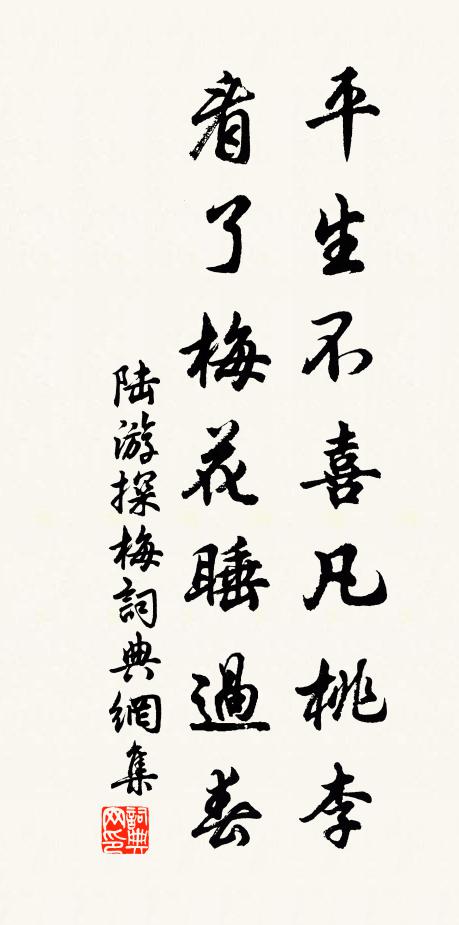 平生不喜凡桃李
看了梅花睡過春
陆游探梅詞典網集
詞典网印